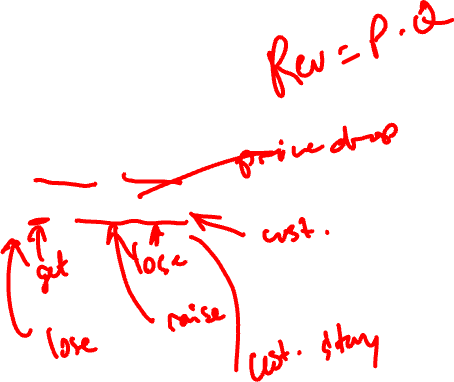 Rev = P.Q
price drop
cust.
get
lose
raise
lose
cust. stay